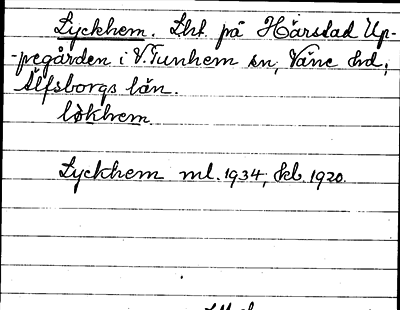 Lyckhem. Lht. på Hårstad Up-
-pegården i V. Tunhem sn, Väne hd,
Älfsborgs län.
lỳkhem.
Lyckhem ml. 1934, Hkb. 1920.